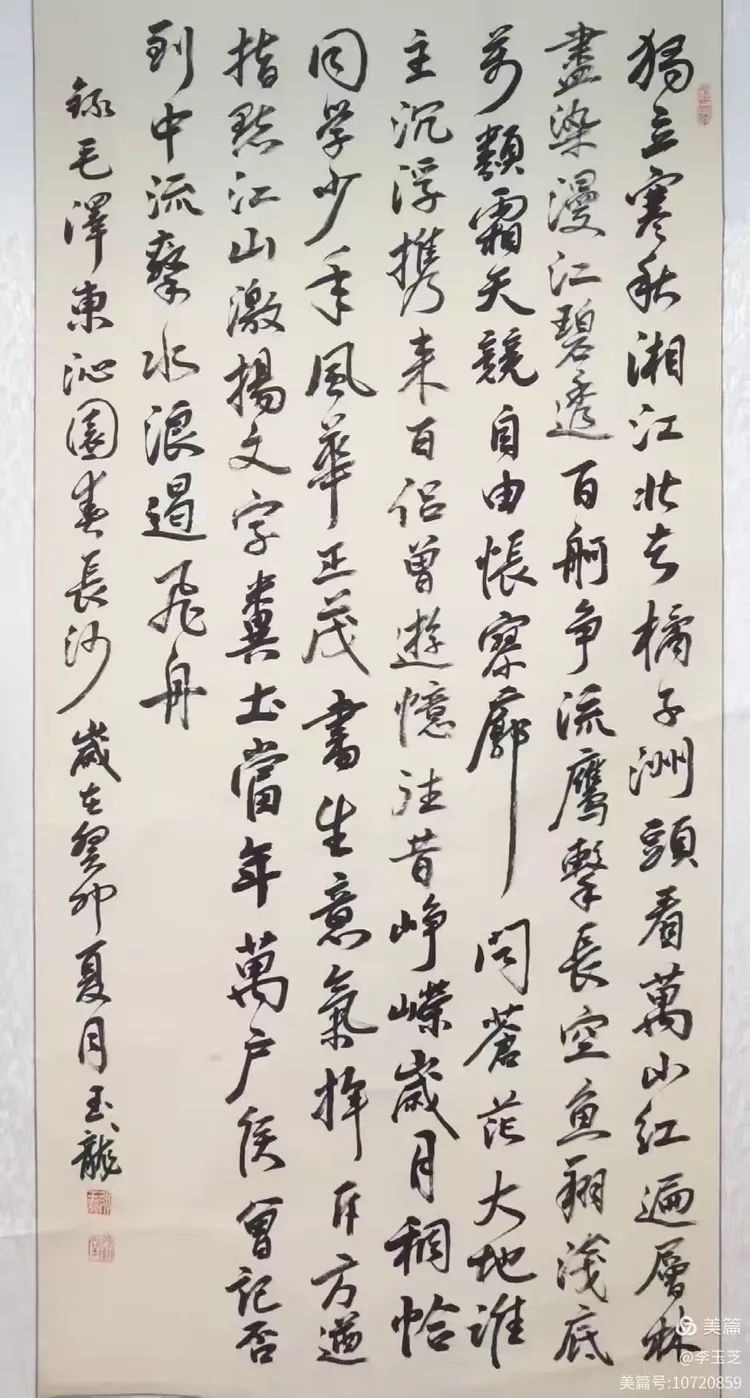 獨立寒秋湘江北去橘子洲頭看萬山红遍層林
盡染漫江碧透百舸争流鷹擊長空魚翔淺底
萬類霜天競自由悵寥廓問蒼茫大地誰
主沉浮携来百侣曾遊憶往昔崢嶸歲月稠恰
同学少年風華正茂書生意氣揮斥方遒
指點江山激揚文字糞土當年萬户侯曾記否
到中流擊水浪遏飛舟
録毛澤東沁園春長沙 歲在癸卯夏月玉龍
美篇
@李玉芝
美篇号:10720859